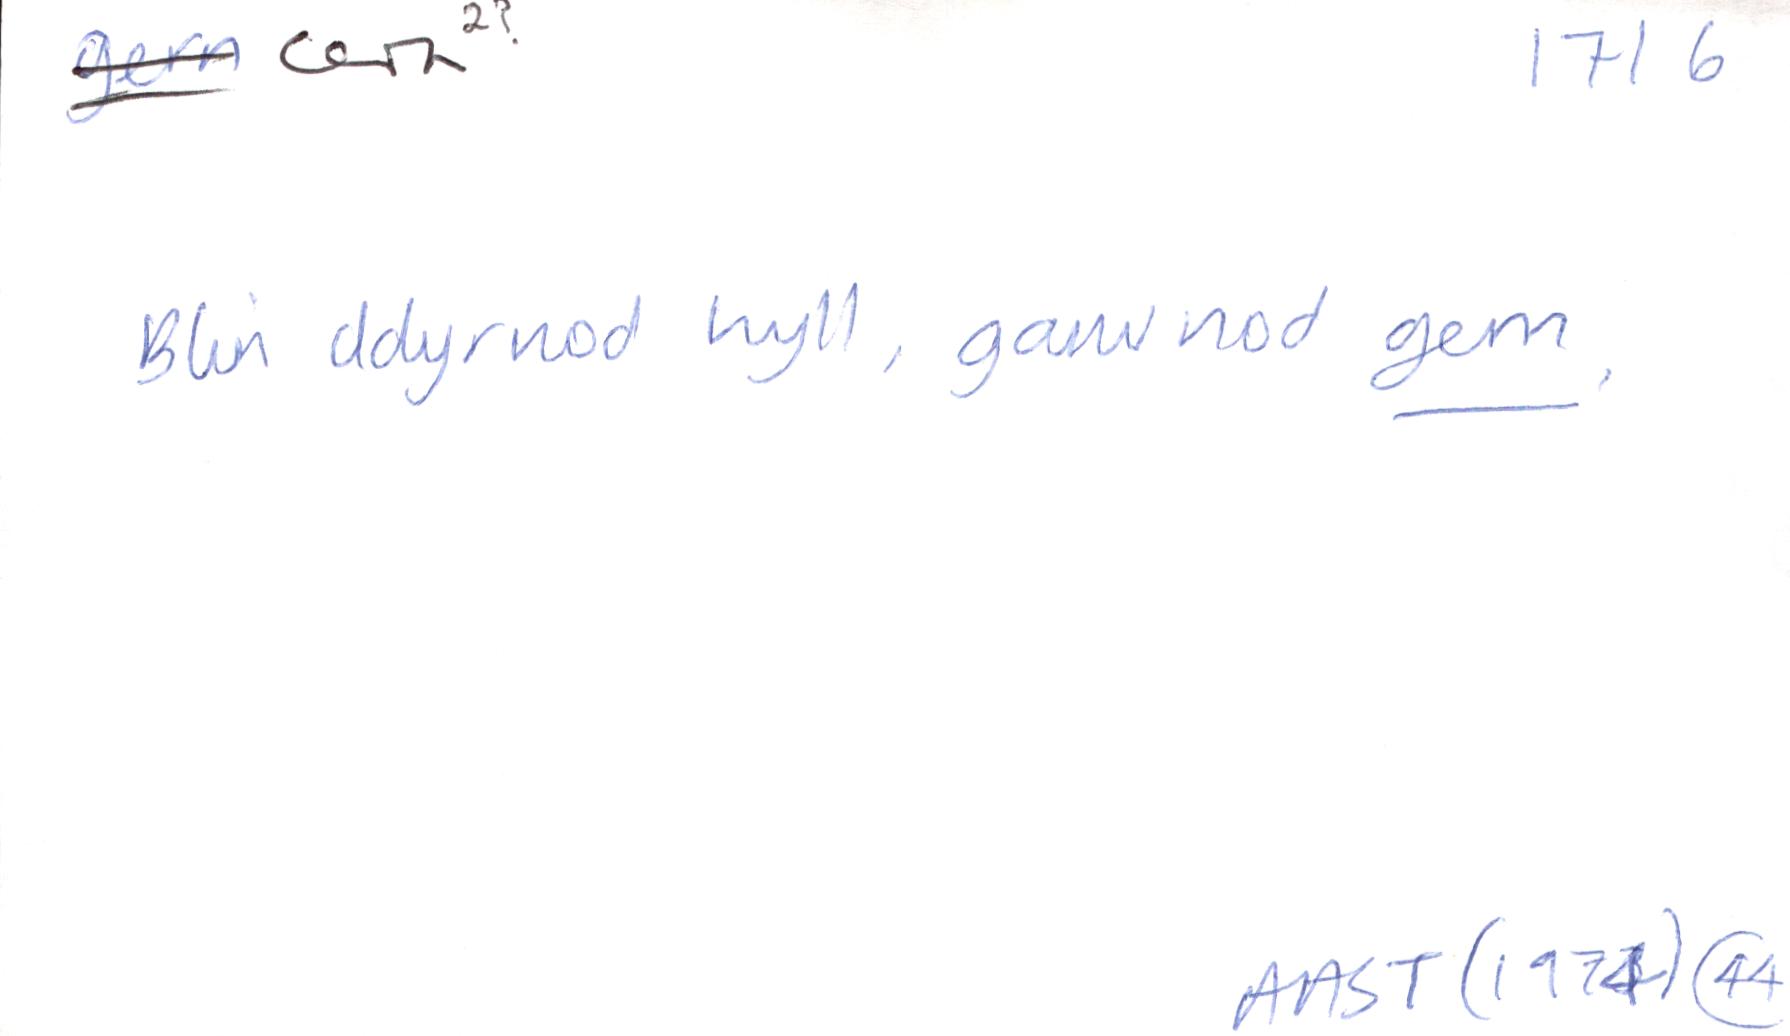 gern cern 2? 1716
Blin ddyrnod hyll, garw nod gern,
AAST (1974) 44